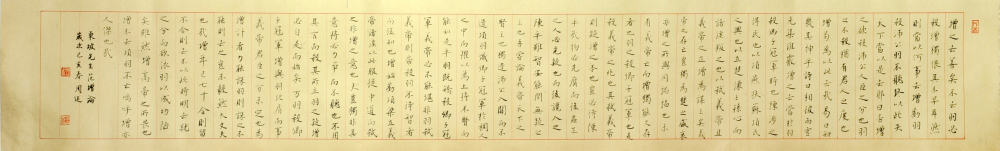 增之去善矣不去羽必
殺增獨恨其不早耳然
則當以何事去增勸羽
殺沛公羽不聽終以此失
天下當以是去耶曰否增
之欲殺沛公人臣之分也羽
之不殺猶有君人之度也
增曷為以此去哉易曰知
幾其神乎詩曰相彼雨雪
先集維霰增之去當於羽
殺卿子冠軍時也陳涉之
得民也以項燕扶蘇項氏
之興也以立楚懷王孫心而
諸侯叛之也以弒義帝且
義帝之立增為謀主矣義
帝之存亡豈獨為楚之盛衰
亦增之所與同禍福也未
有義帝亡而增獨能久存
者也羽之殺卿子冠軍也是
弒義帝之兆也其弒義帝
則疑增之本也豈必待陳
平哉物必先腐也而後蟲生
之人必先疑也而後讒入之
陳平雖智安能間無疑之
主哉吾嘗論義帝天下之
賢主也獨遣沛公入關而不
遣項羽識卿子冠軍於稠人
之中而擢以為上將不賢而
能如是乎羽既矯殺卿子冠
軍義帝必不能堪非羽弒
帝則帝殺羽不待智者
而後知也增始勸項梁立義
帝諸侯以此服從中道而弒
之非增之意也夫豈獨非其
意將必力爭而不聽也不用
其言而殺其所立羽之疑增
必自是而始矣方羽殺卿
子冠軍增與羽比肩而事
義帝君臣之分未定也為
增計者力能誅羽則誅之不
能則去之豈不毅然大丈夫
也哉增年已七十合則留
不合則去不以此時明去就
之分而欲依羽以成功陋
矣雖然增高帝之所畏也
增不去項羽不亡嗚呼增亦
人傑也哉
東坡先生范增論
歲次己亥春